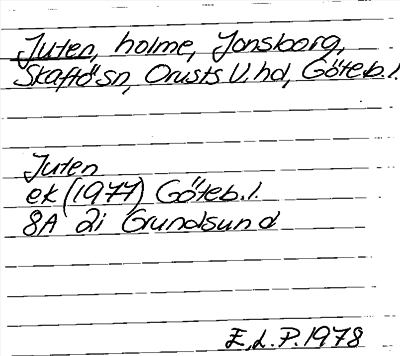 Juten, holme, Jonsborg,
Skaftö sn, Orusts V. hd, Göteb. l.
Juten
ek (1977) Göteb. l.
8A 2i Grundsund
E. L. P. 1978